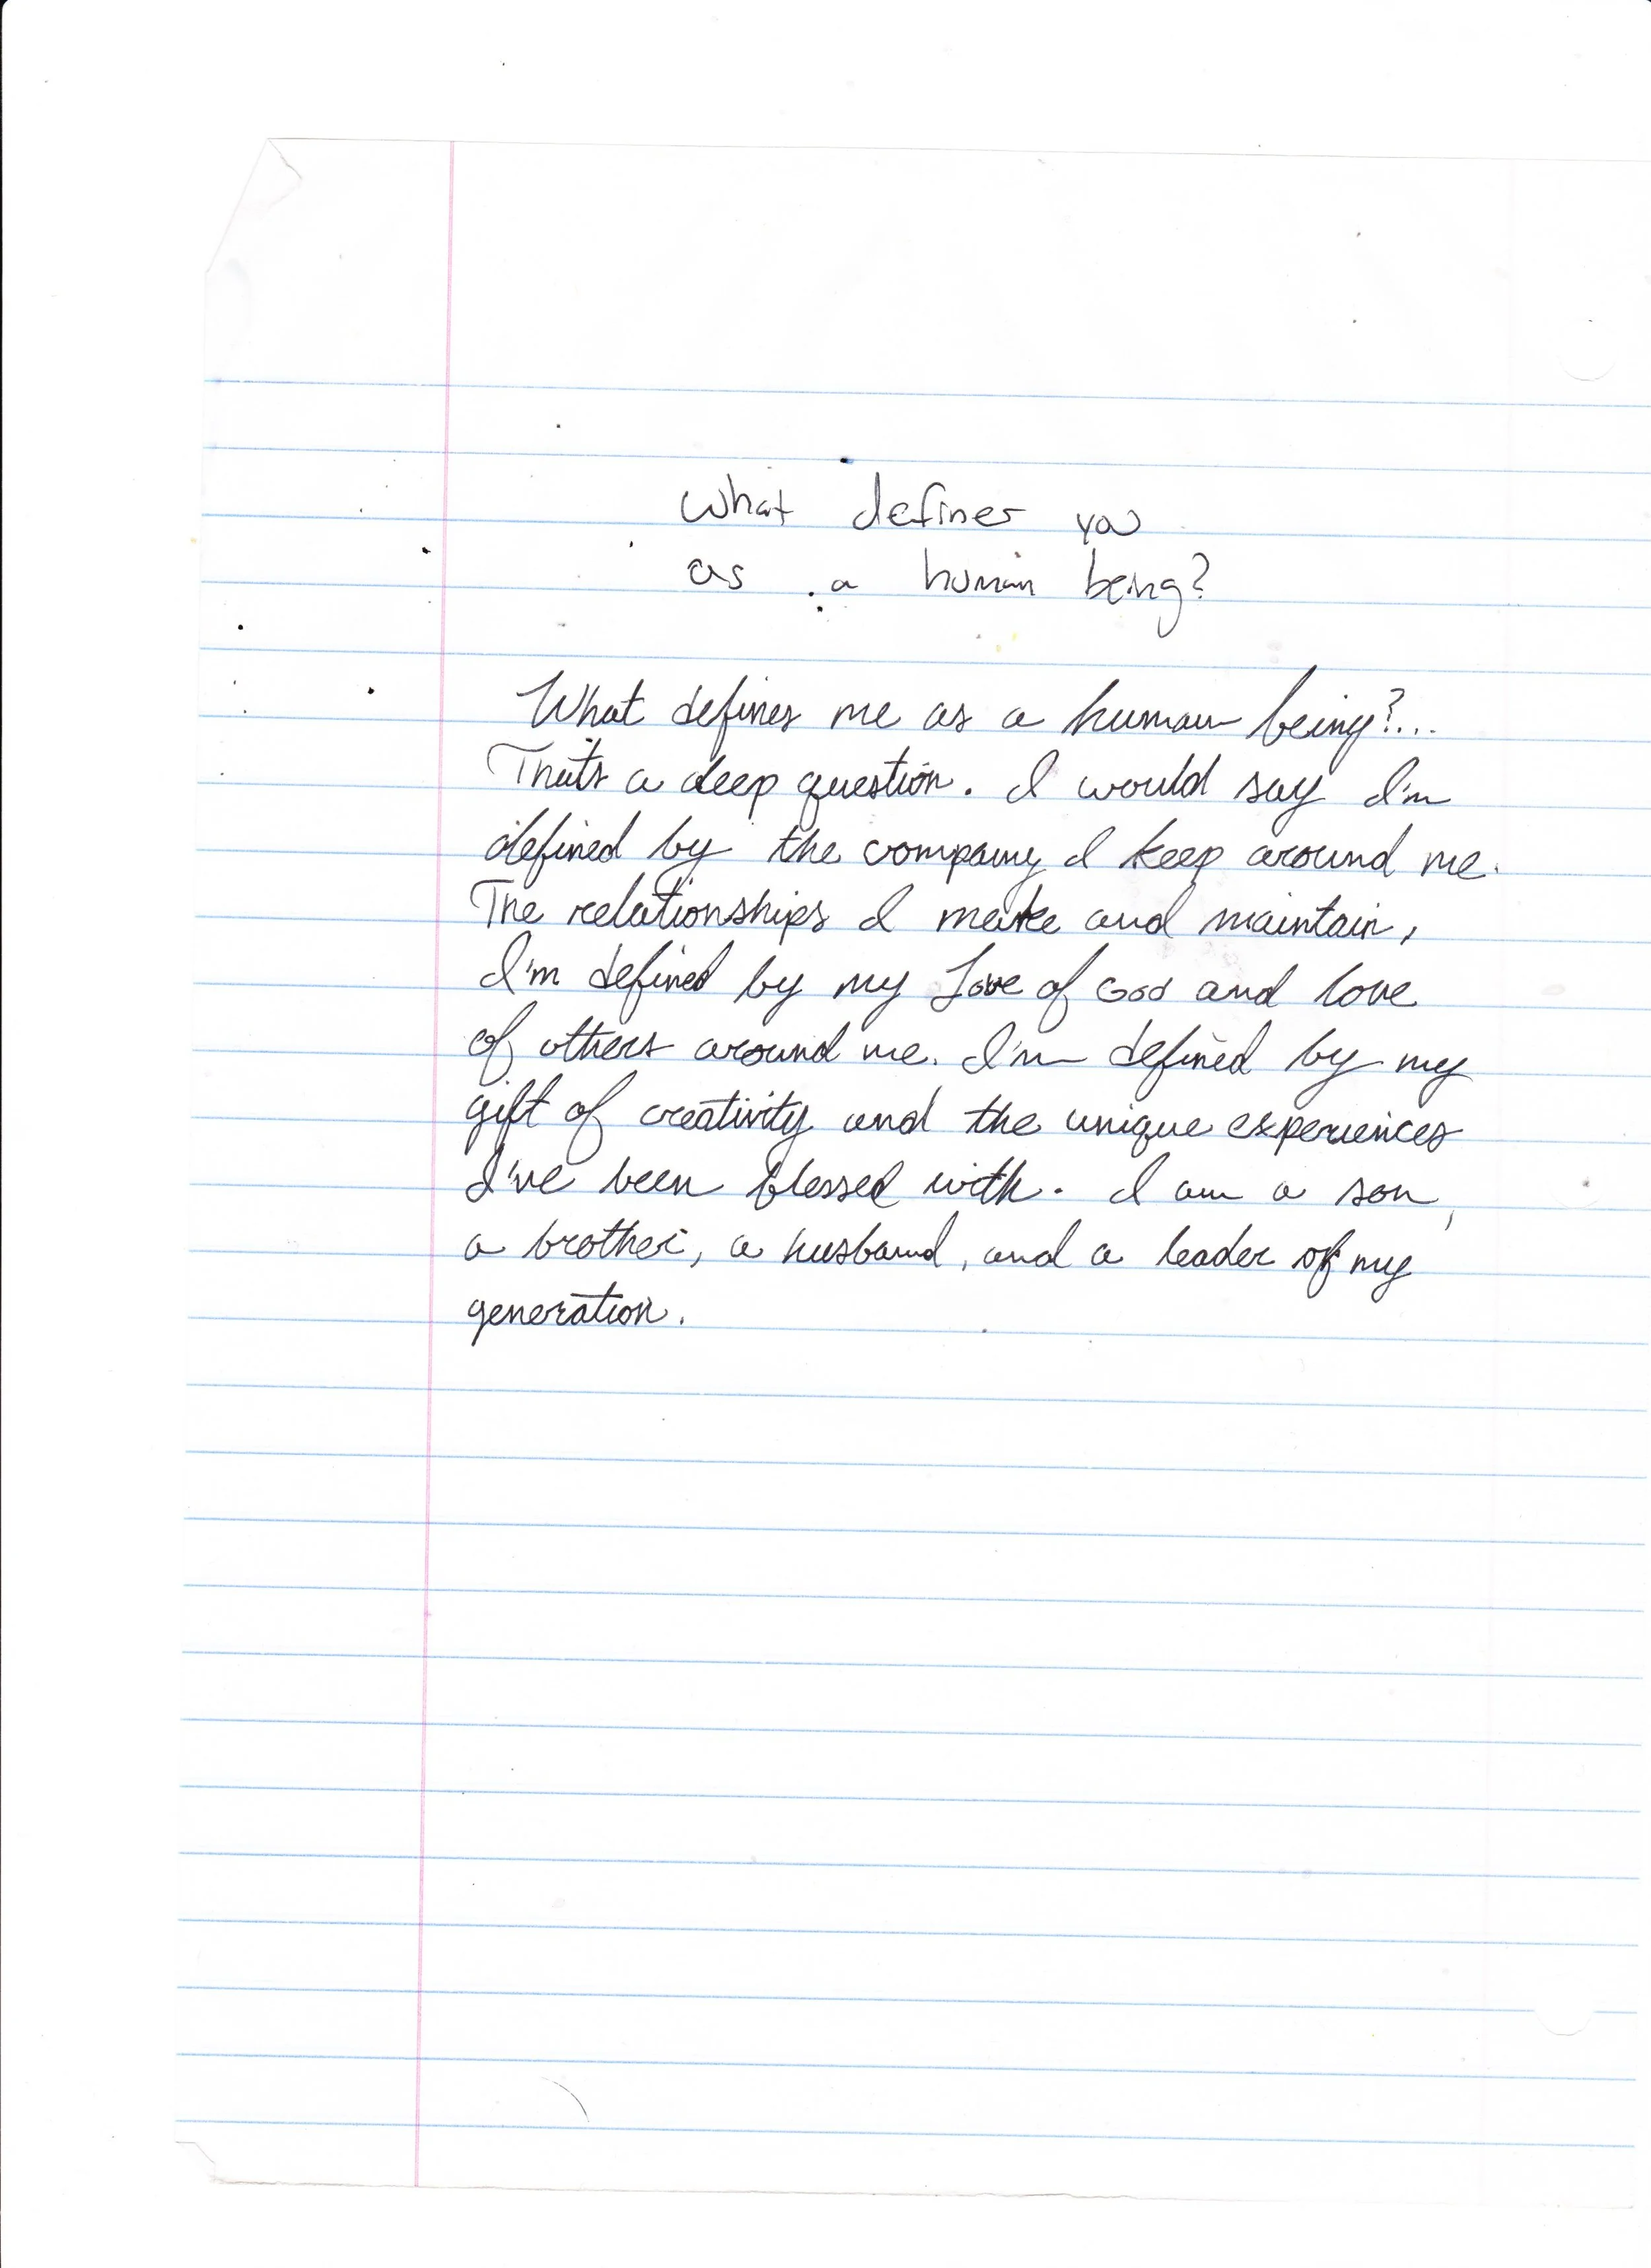 What defines you
as a human being?
What defines me as a human being?...
Thats a deep question. I would say I'm
defined by the company I keep around me.
The relationships I make and maintain,
I'm defined by my Love of God and love
of others around me. I'm defined by my
gift of creativity and the unique experiences
I've been blessed with. I am a son,
a brother, a husband, and a leader of my
generation.